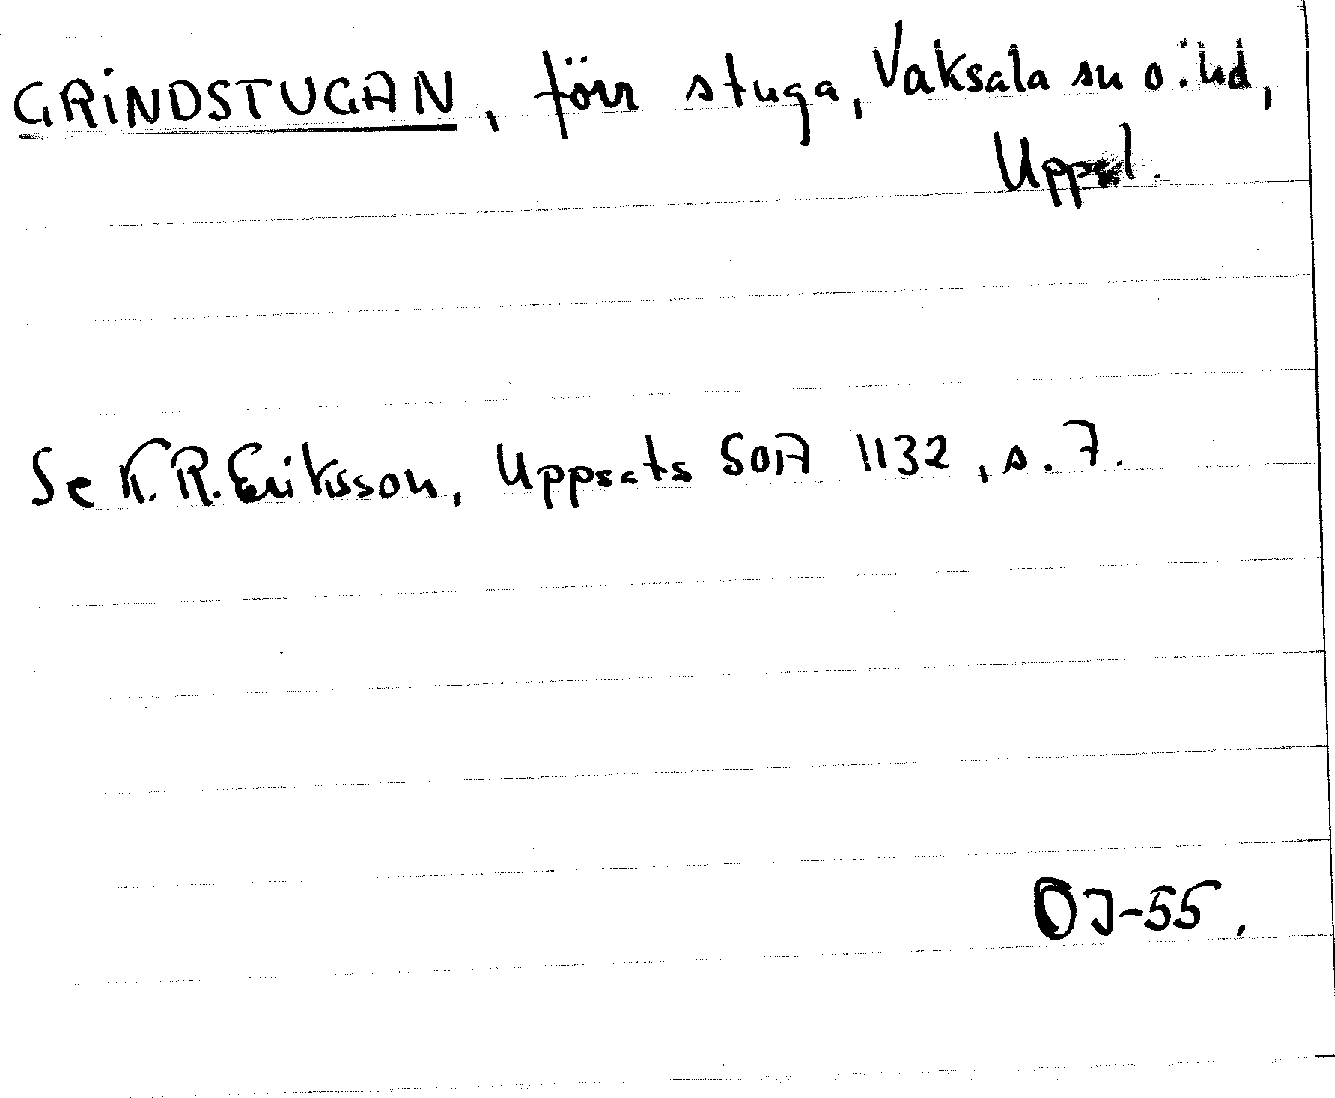 GRINDSTUGAN, förr stuga, Vaksala sn o. hd,
Uppl.
Se K.R. Eriksson, Uppsats SOA 1132, s. 7.
OJ-55.